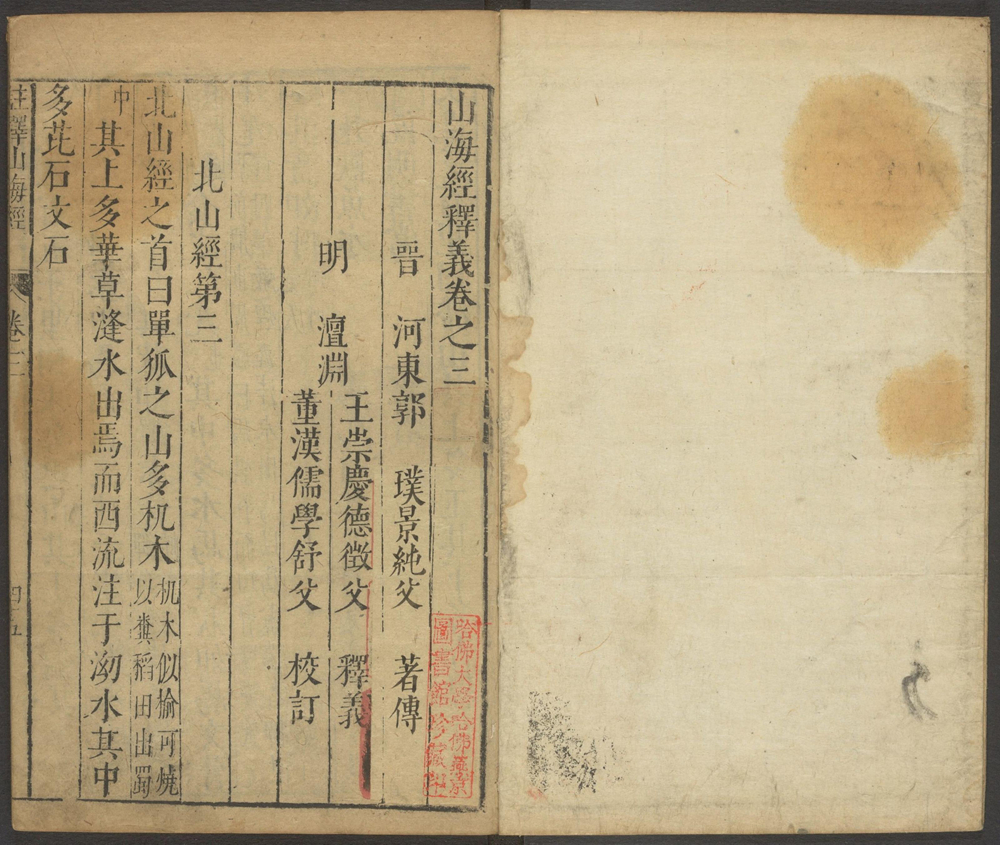 山海經釋義卷之三
晋 河東郭 璞景純父 著傳
明 澶淵
王崇慶德徵父 釋義
董漢儒學舒父 校訂
北山經第三
北山經之首曰單狐之山多机木
机木似榆可燒
以糞稻田出蜀
中
其上多華草漨水出焉而西流注于泑水其中
多茈石文石
註釋山海經
卷三
哈佛大學哈佛燕京
圖書館珍藏印